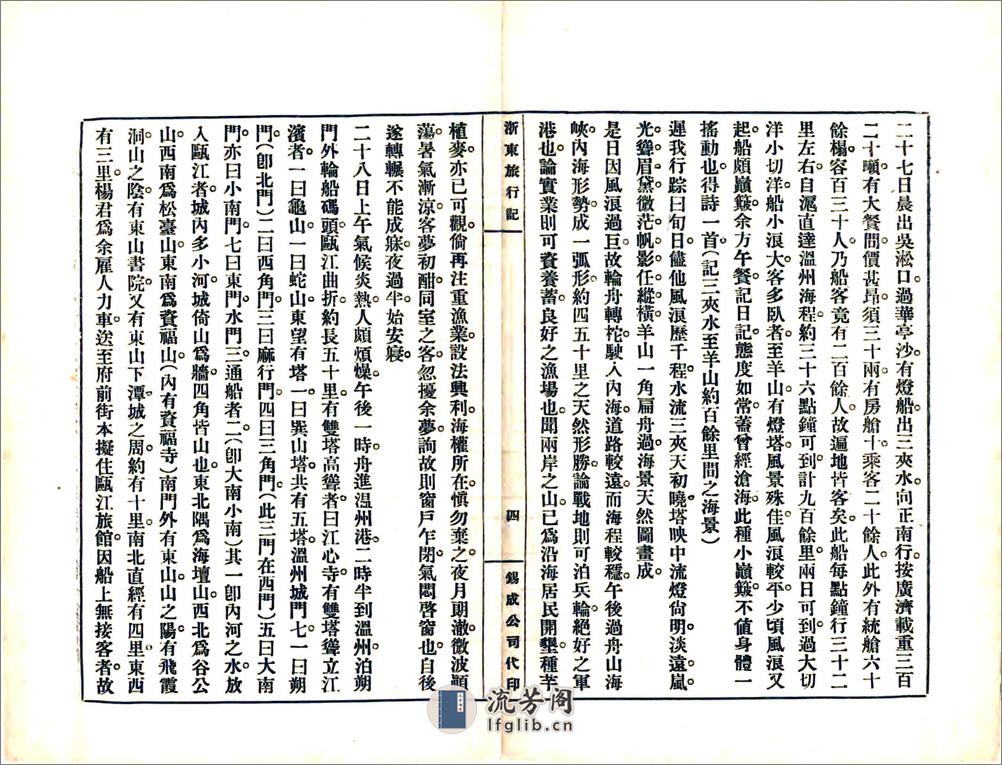 二十七日晨出吳淞口。過華亭沙。有燈船。出三夾水。向正南行。按廣濟載重三百
二十噸。有大餐間。價甚昂。須三十兩。有房艙十。乘客二十餘人。此外有統艙六十
餘榻。容百三十人。乃船客竟有二百餘人。故遍地皆客矣。此船每點鐘行三十二
里左右。自滬直達溫州海程約三十六點鐘可到。計九百餘里。兩日可到。過大切
洋小切洋。船小浪大。客多臥者。至羊山。有燈塔。風景殊佳。風浪較平。少頃風浪又
起。船頗巔簸。余方午餐。記日記。態度如常。蓋曾經滄海。此種小巔簸不值身體一
搖動也。得詩一首。(記三夾水至羊山約百餘里間之海景)
遲我行踪日旬日。儘他風浪歷千程。水流三夾天初曉。塔映中流燈尙明。淡遠嵐
光聳眉黛。微茫帆影任縱橫。羊山一角扁舟過。海景天然圖畫成。
是日因風浪過巨。故輪舟轉柁駛入內海。道路較遠。而海程較穩。午後過舟山海
峽。內海形勢成一弧形。約四五十里之天然形勝。論戰地則可泊兵輪。絕好之軍
港也。論實業則可資養蓄。良好之漁場也。聞兩岸之山。已爲沿海居民開墾種芋
浙東旅行記
四
錫成公司代印
植麥。亦已可觀。倘再注重漁業。設法興利。海權所在。慎勿棄之。夜月朗澈。微波顚
蕩。暑氣漸涼。客夢初酣。同室之客。忽擾余夢。詢故則窗戶乍閉。氣悶啓窗也。自後
遂轉輾不能成寐。夜過半始安寢。
二十八日上午氣候炎熱。人頗煩燥。午後一時舟進溫州港。二時半到溫州。泊朔
門外輪船碼頭。甌江曲折。約長五十里。有雙塔高聳者。曰江心寺。有雙塔聳立江
濱者。一曰龜山。一曰蛇山。東望有塔。一曰巽山塔。共有五塔。溫州城門七。一曰朔
門(卽北門)二曰西角門。三曰麻行門。四曰三角門。(此三門在西門)五曰大南
門。亦曰小南門。七曰東門。水門三。通船者二。(卽大南小南)其一卽內河之水放
入甌江者。城內多小河。城倚山爲牆。四角皆山也。東北隅爲海壇山。西北爲谷公
山。西南爲松臺山。東南爲資福山。(內有資福寺)南門外有東山。山之陽有飛霞
洞。山之陰有東山書院。又有東山下潭。城之周約有十里。南北直經有四里。東西
有三里。楊君爲余雇人力車。送至府前街。本擬住甌江旅館。因船上無接客者。故
流芳阁
lfglib.cn